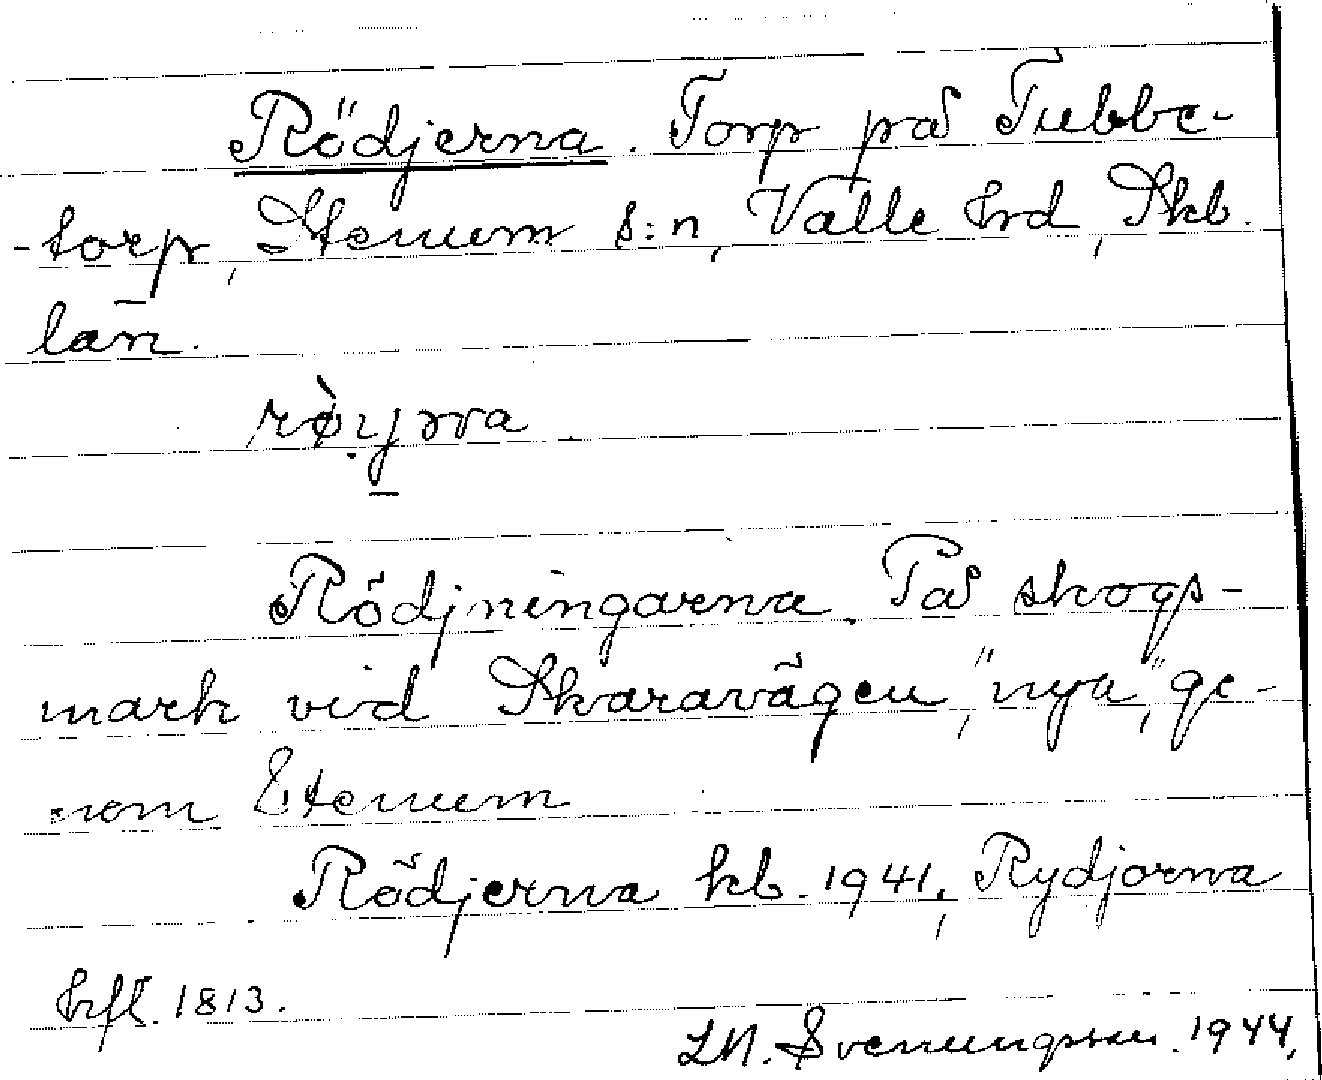 Rödjerna. Torp på Tubbe-
-torp, Stenum s:n, Valle hrd, Skb.
län.
Rödjningarna. På skogs-
mark vid Skaravägen, "nya", ge-
nom Stenum
Rödjerna kb. 1941; Rydjorna
hfl. 1813.
Svenungsson. 1944.